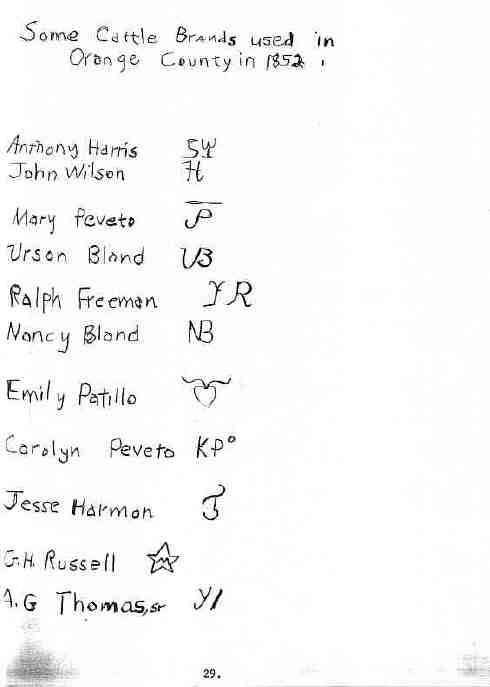 Some Cattle Brands used in
Orange County in 1852.
Anthony Harris SY
John Wilson H
Mary Peveto P
Urson Bland UB
Ralph Freeman JR
Nancy Bland NB
Emily Patillo
Carolyn Peveto KP°
Jesse Harmon
G.H. Russell
A.G Thomas, sr Y/
29.